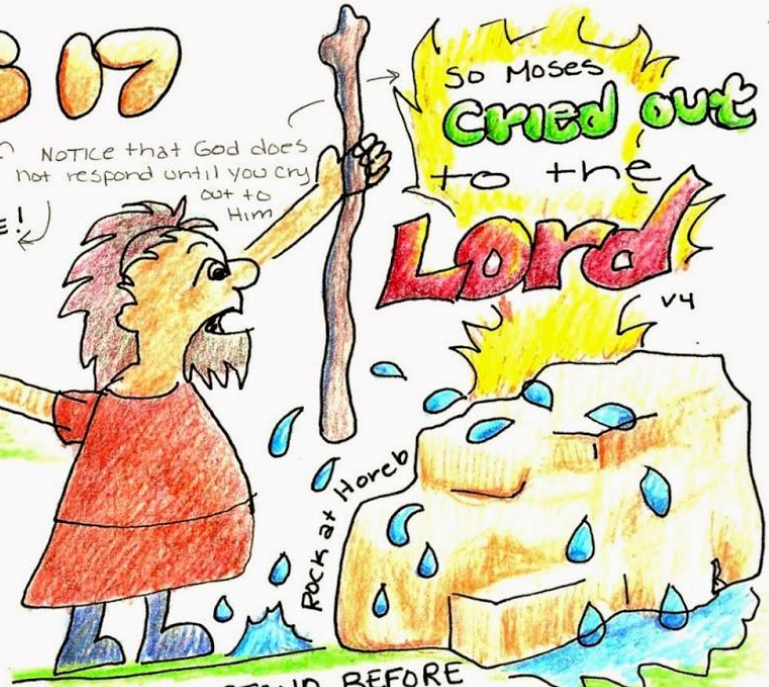 17
NOTICE that God does
not respond until you cry
out to
Him
So Moses
cried out
to the
Lord
v4
Rock at Horeb
BEFORE